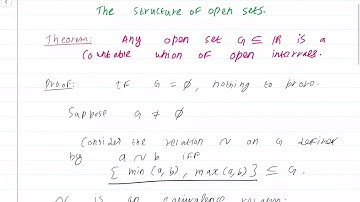 The structure of open sets.
Theorem: Any open set G ⊆ ℝ is a
Countable union of open intervals.
Proof: If G = ∅, nothing to prove.
Suppose G ≠ ∅
Consider the relation ~ on G defined
by a ~ b iff
{ min (a, b), max (a, b) } ⊆ G.
~ is an equivalence relation